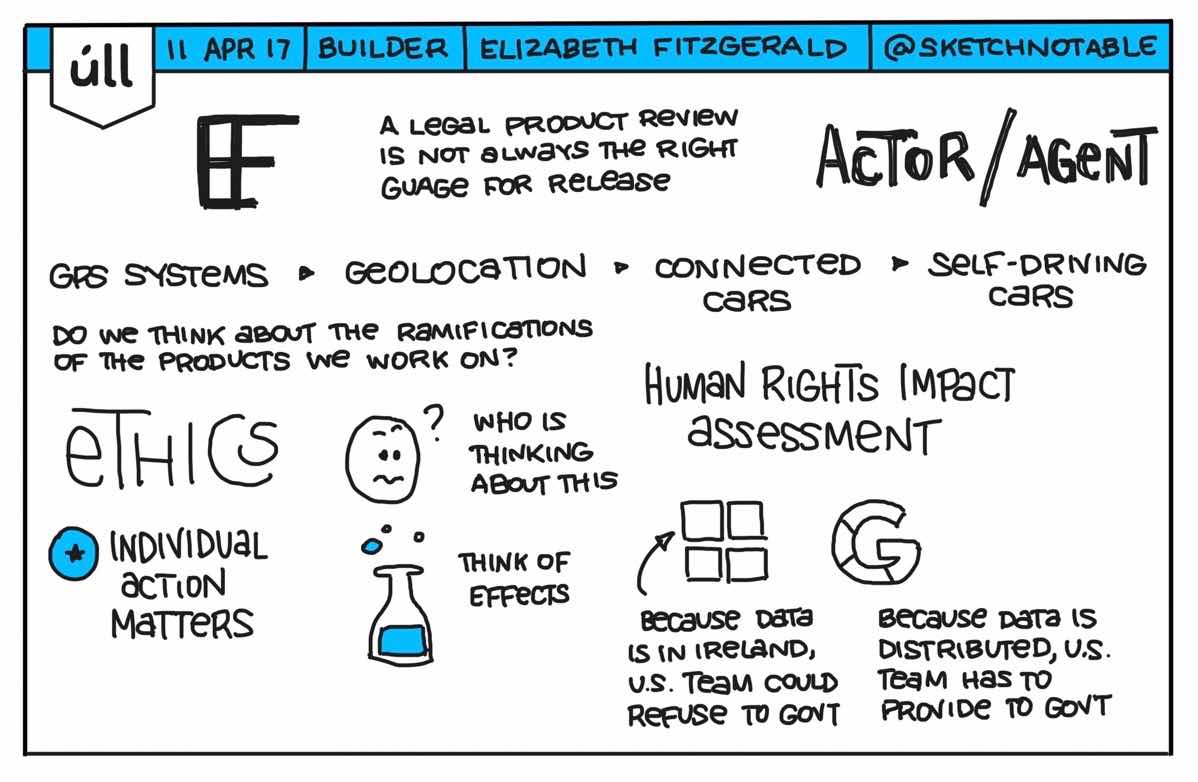 úll
11 APR 17
BUILDER
ELIZABETH FITZGERALD
@SKETCHNOTABLE
EF
A LEGAL PRODUCT REVIEW
IS NOT ALWAYS THE RIGHT
GUAGE FOR RELEASE
ACTOR/AGENT
GPS SYSTEMS ▸ GEOLOCATION ▸ CONNECTED ▸ SELF-DRIVING
CARS
CARS
DO WE THINK ABOUT THE RAMIFICATIONS
OF THE PRODUCTS WE WORK ON?
HUMAN RIGHTS IMPACT
ASSESSMENT
ETHICS
?
WHO IS
THINKING
ABOUT THIS
INDIVIDUAL
ACTION
MATTERS
THINK OF
EFFECTS
G
BECAUSE DATA
IS IN IRELAND,
U.S. TEAM COULD
REFUSE TO GOVT
BECAUSE DATA IS
DISTRIBUTED, U.S.
TEAM HAS TO
PROVIDE TO GOVT